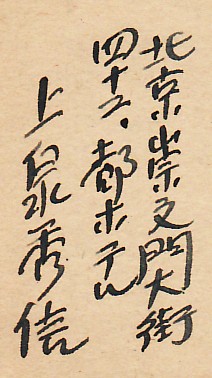 北京崇文門大街
四十五、都ホテル
上泉秀信